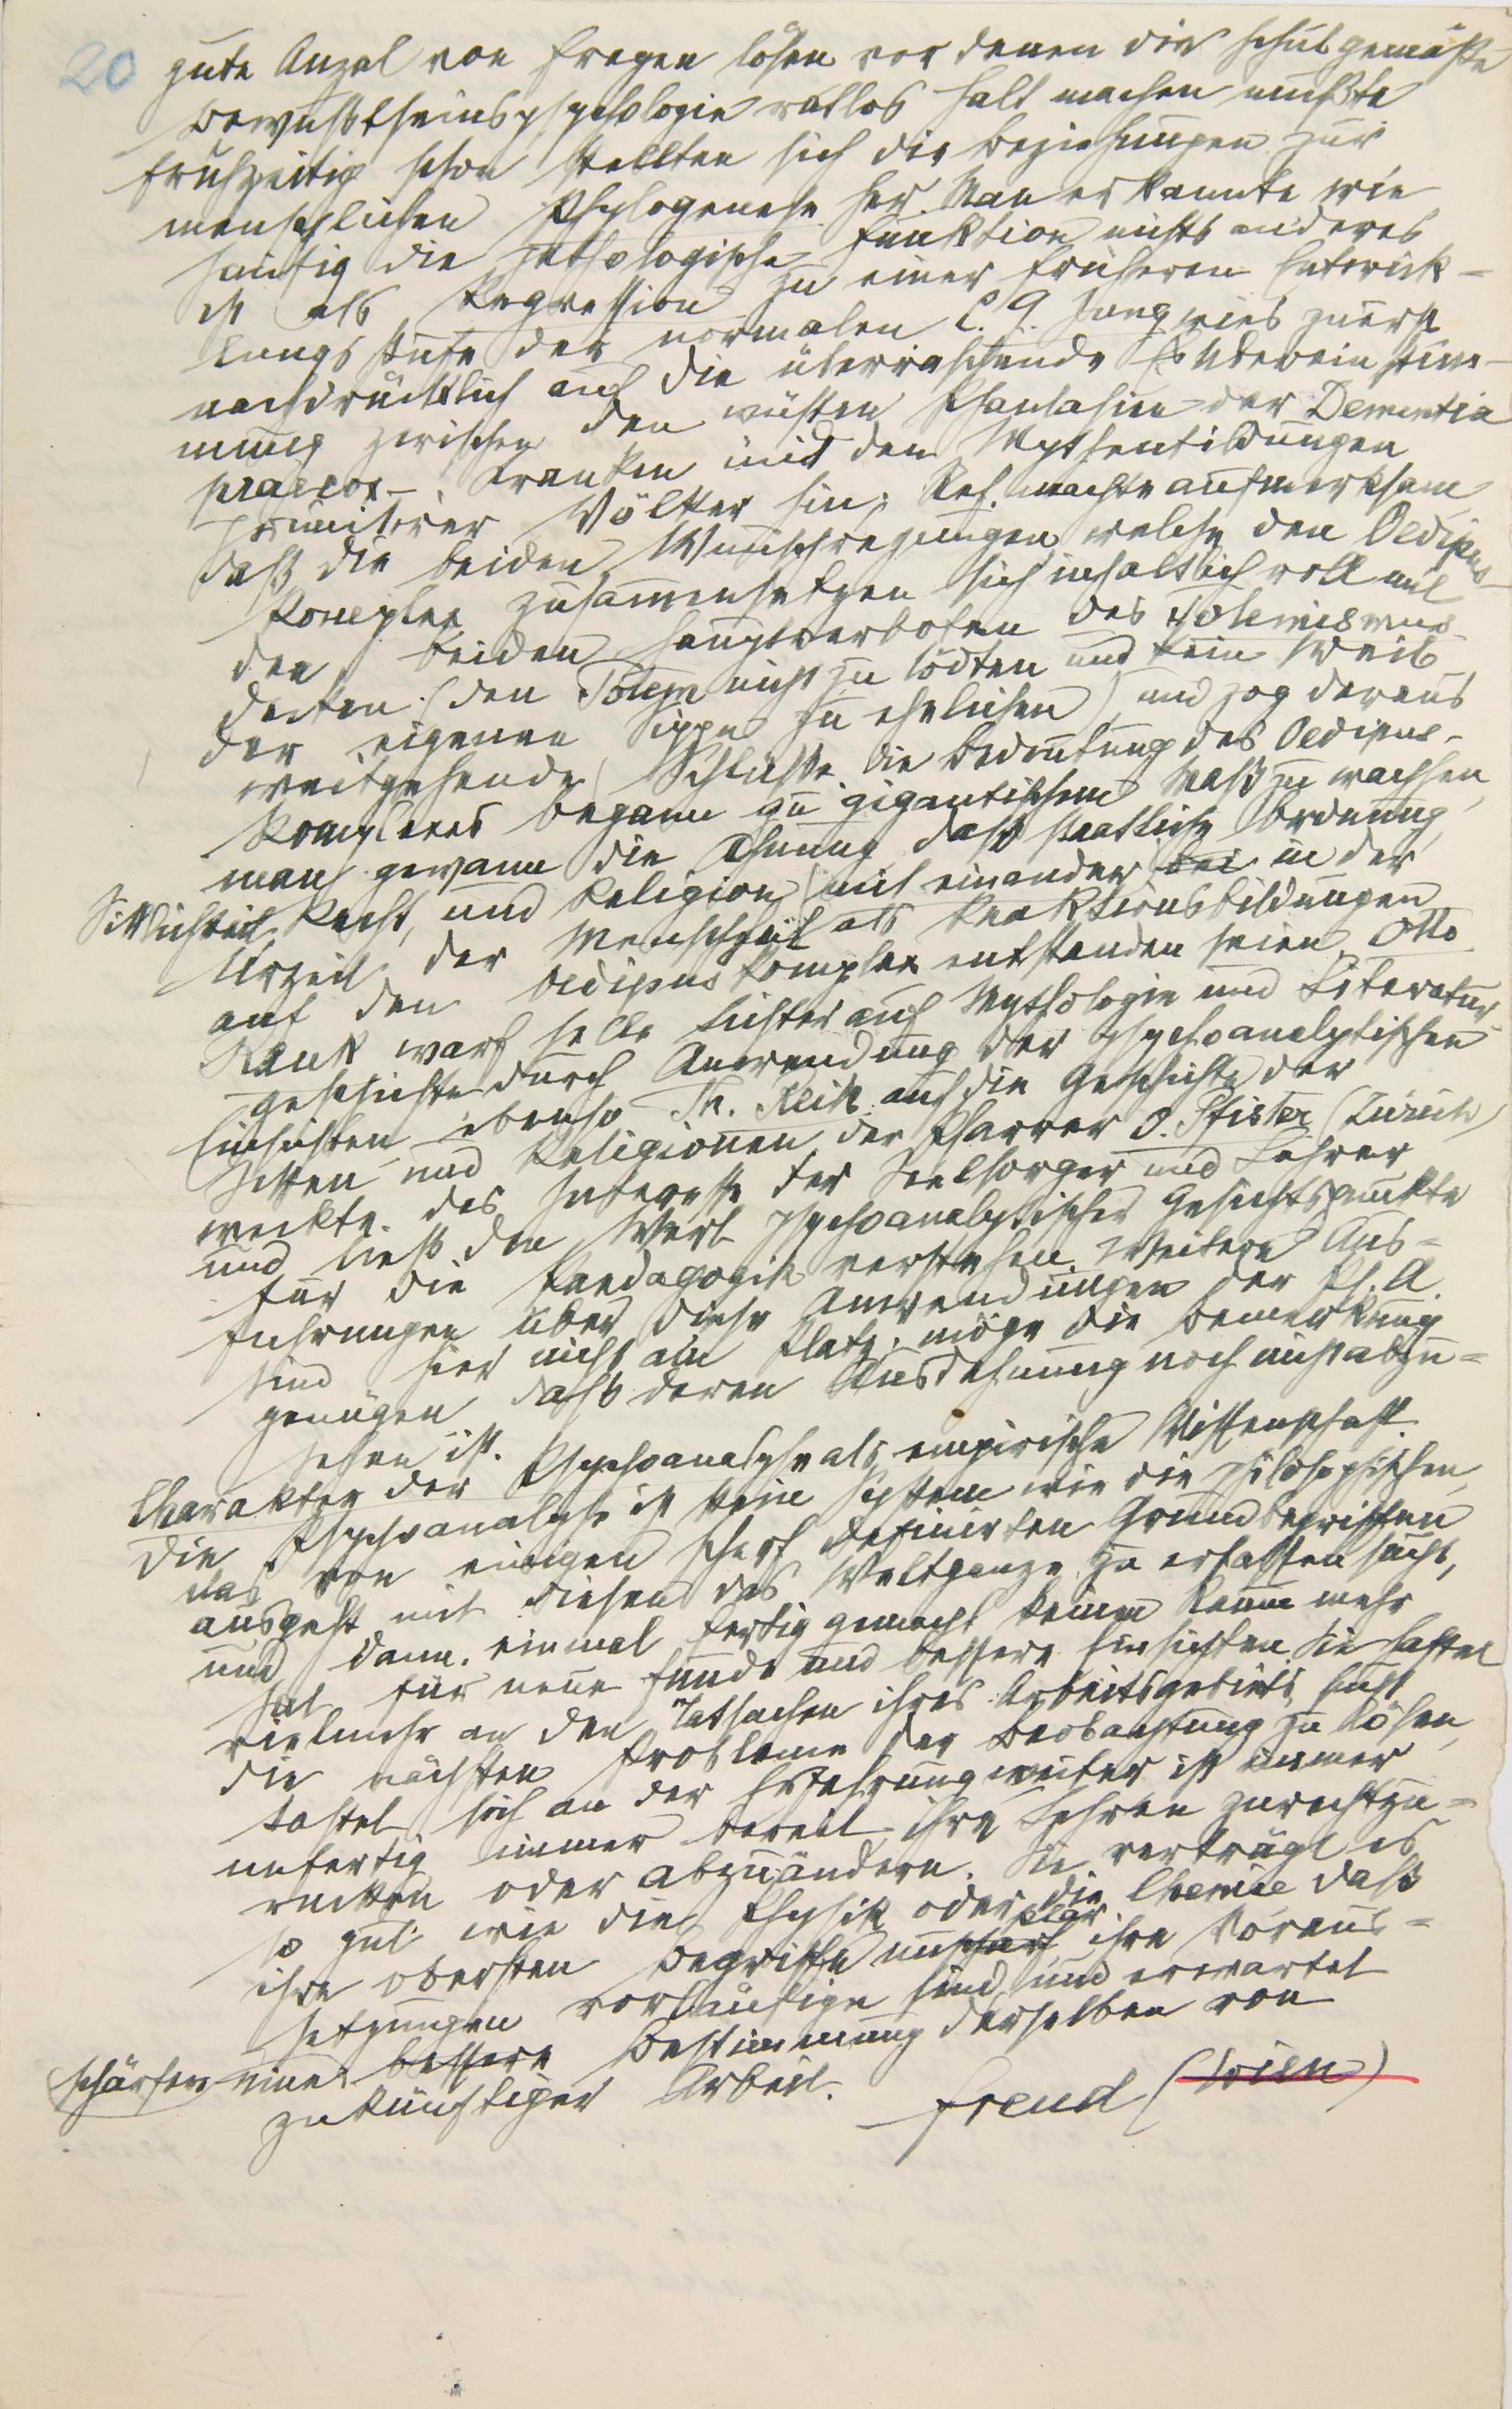 20 gute Anzal von Fragen lösen vor denen die schulgemäße
Bewußtseinspsychologie ratlos Halt machen mußte
Frühzeitig schon stellten sich die Beziehungen zur
menschlichen Phylogenese her. Man erkannte wie
häufig die pathologische Funktion nichts anderes
ist als Regression zu einer früheren Entwick=
lungsstufe der normalen C. G. Jung wies zuerst
nachdrücklich auf die überraschende Uberein stim-
mung zwischen den wüsten Phantasien der Dementia
praecox- Kranken mit den Mythenbildungen
primitiver Völker hin; Ref. machte aufmerksam,
daß die beiden Wunschregungen welche den Oedipus-
Komplex zusammensetzen sich inhaltlich voll mit
den beiden Hauptverboten des Totemismus
decken. (den Totem nicht zu tödten und kein Weib
der eigenen Sippe zu ehelichen) und zog daraus
weitgehende Schlüsse. Die Bedeutung des Oedipus-
Komplexes begann zu gigantischem Maß zu wachsen,
man gewann die Ahnung daß staatliche Ordnung,
Sittlichkeit, Recht, und Religion mit einander bei in der
Urzeit der Menschheit als Reaktionsbildungen
auf den Oedipuskomplex entstanden seien. Otto
Rank warf helle Lichter auf Mythologie und Literatur-
geschichte durch Anwendung der psychoanalytischen
Einsichten, ebenso Th. Reik auf die Geschichte der
Sitten und Religionen, der Pfarrer O. Pfister (Zürich)
weckte das Interesse der Seelsorger und Lehrer
und ließ den Wert psychoanalytischer Gesichtspunkte
für die Paedagogik verstehen. Weitere Aus=
führungen über diese Anwendungen der Ps. A.
sind hier nicht am Platz; möge die Bemerkung
genügen daß deren Ausdehnung noch nicht abzu=
sehen ist.
Charakter der Psychoanalyse als empirische Wissenschaft.
Die Psychoanalyse ist kein System wie die philosophischen,
das von einigen scharf definirten Grundbegriffen
ausgeht mit diesen das Weltganze zu erfassen sucht,
und dann, einmal fertig gemacht keinen Raum mehr
hat für neue Funde und bessere Einsichten. Sie haftet
vielmehr an den Tatsachen ihres Arbeitsgebiets sucht
die nächsten Probleme der Beobachtung zu lösen,
tastet sich an der Erfahrung weiter ist immer
unfertig immer bereit ihre Lehren zurechtzu=
rücken oder abzuändern. Sie verträgt es
so gut wie die Physik oder die Chemie daß
ihre obersten Begriffe unscharf klar ihre Voraus=
setzungen vorläufige sind und erwartet
schärfere eine bessere Bestimmung derselben von
zukünftiger Arbeit.
Freud (Wien)